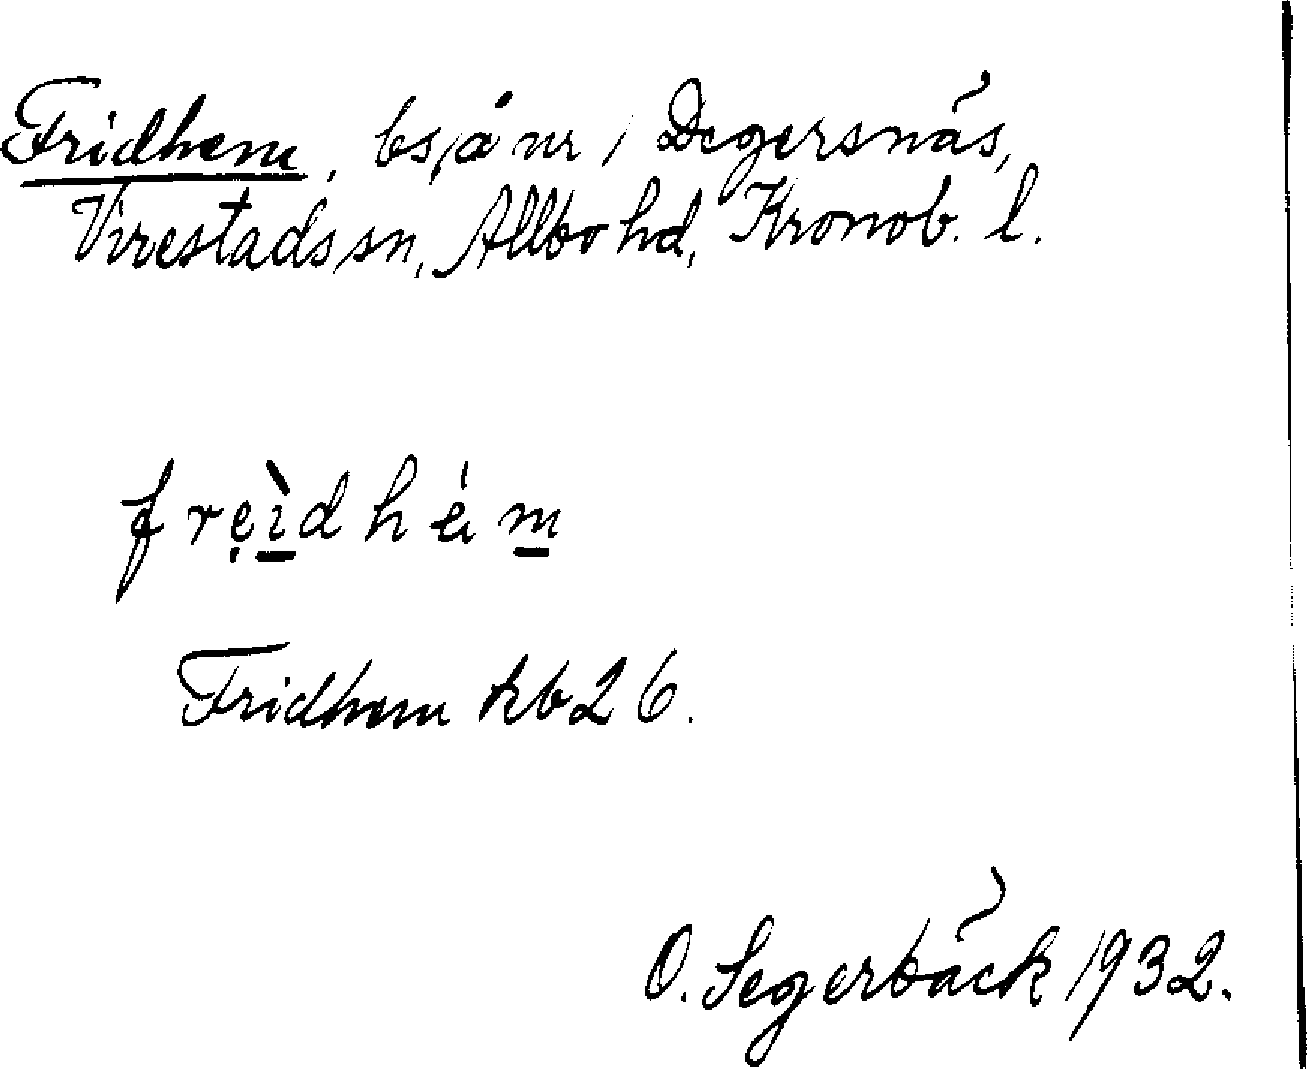 Fridhem, bs, å nr 1 Degersnäs,
Virestads sn, Allbo hd, Kronob. l.
frẹì̱dhèm̱
Fridhem kb 26.
O. Segerbäck 1932.